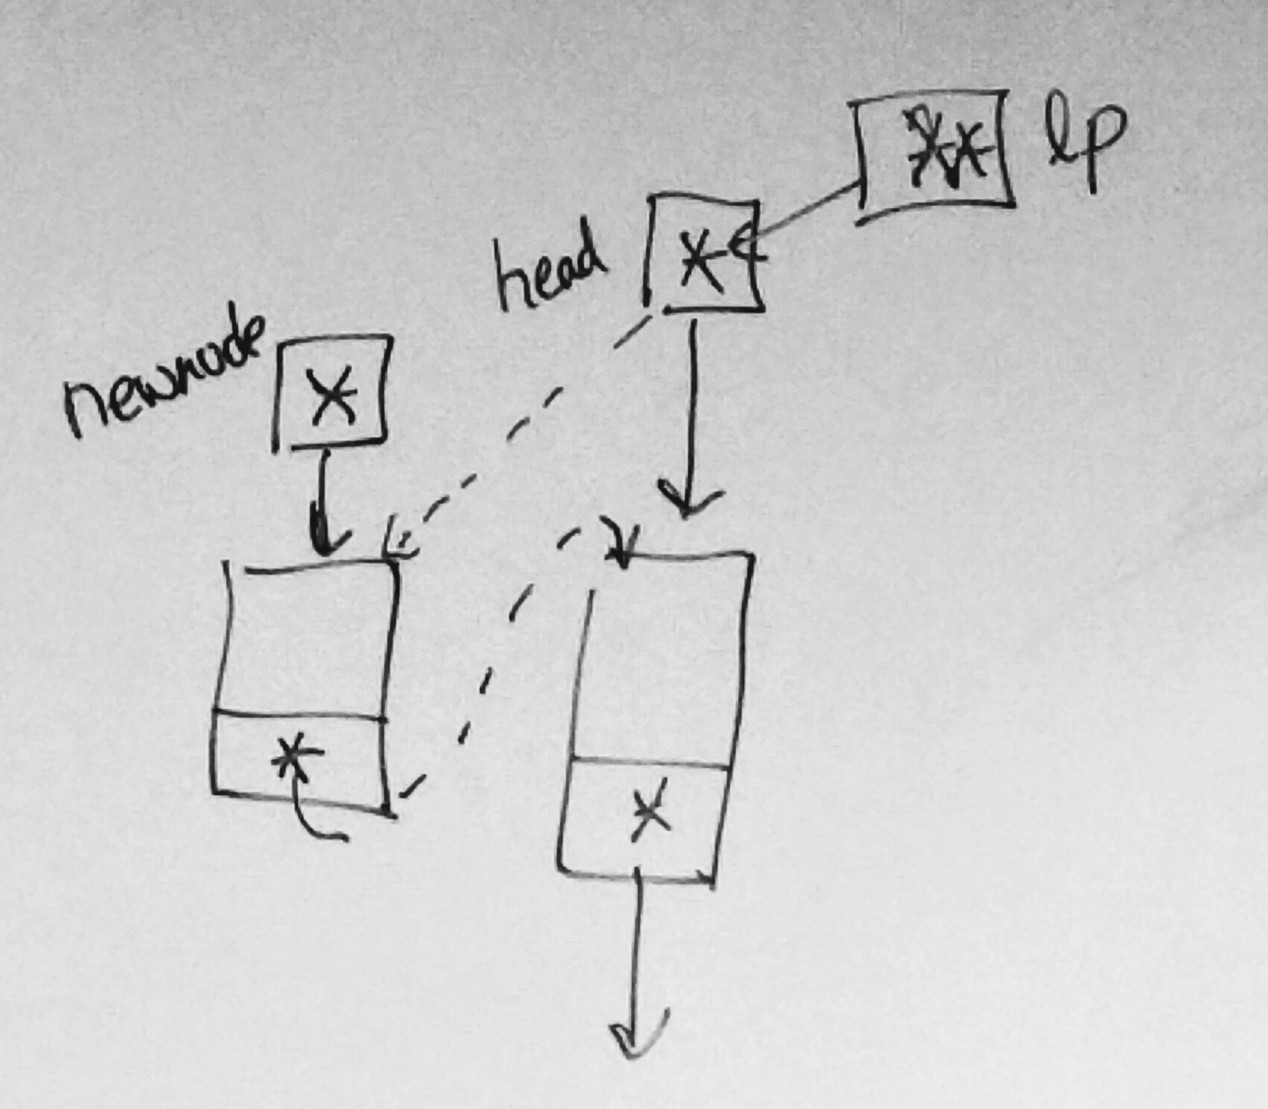 ** lp
head *
newnode *
*
*